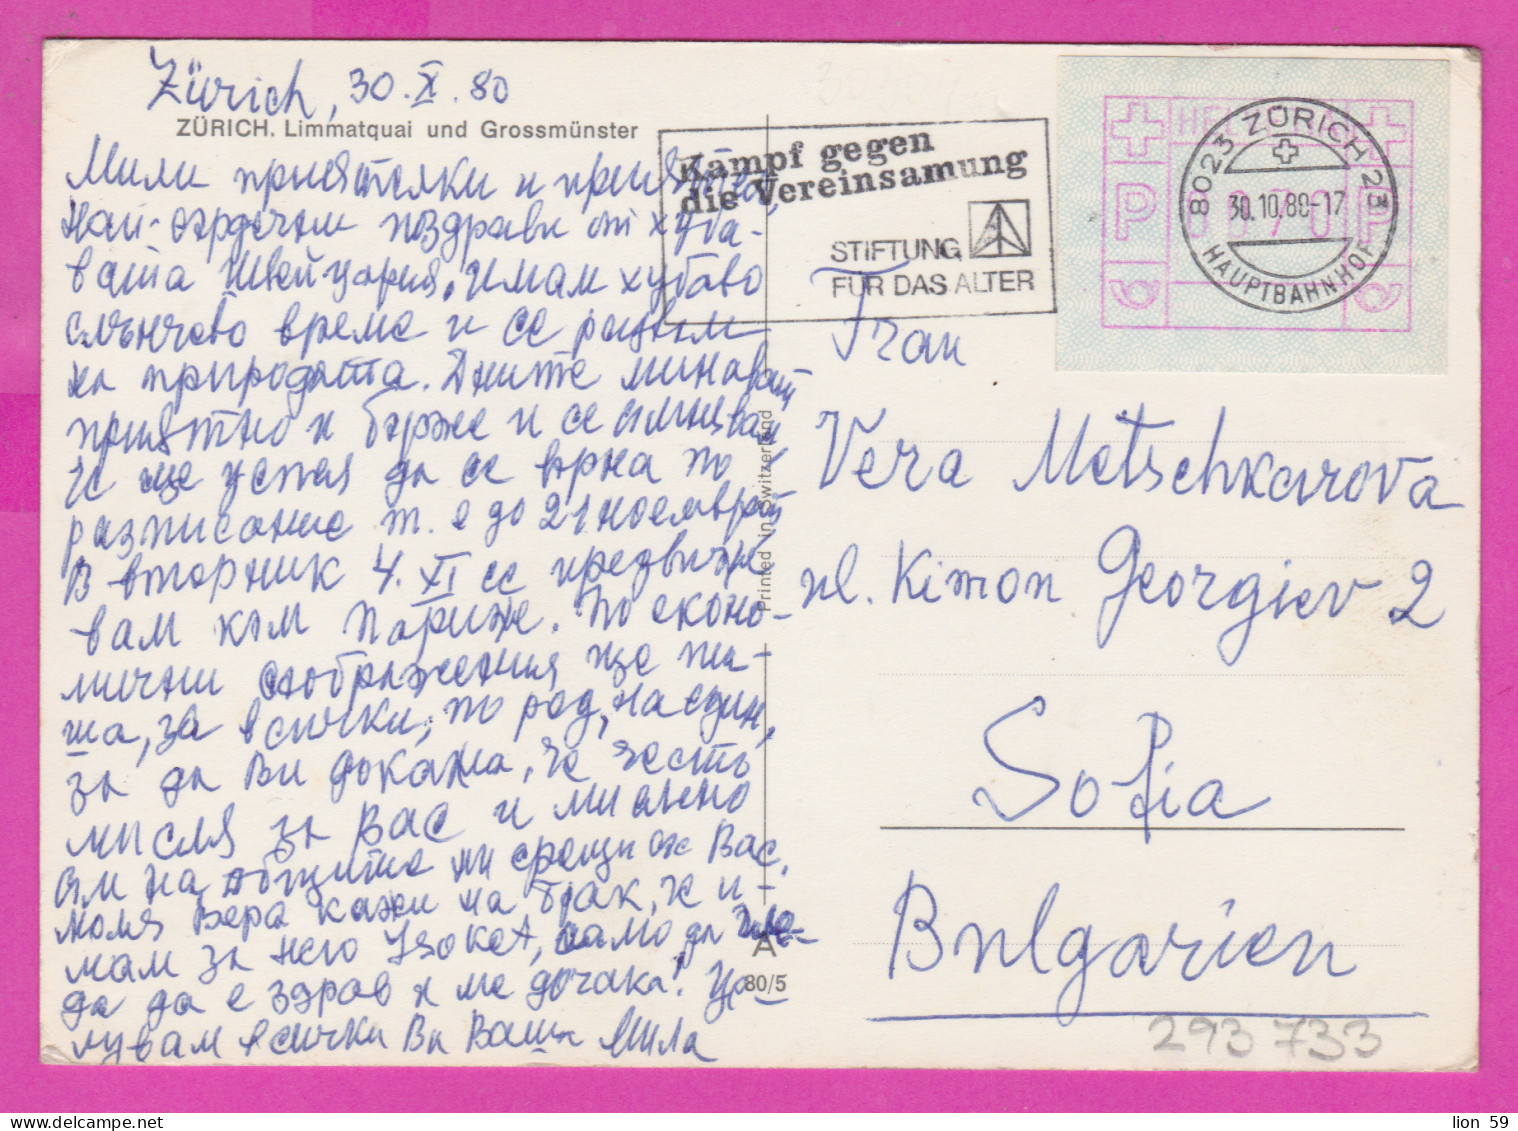 Zürich, 30.X.80
ZÜRICH. Limmatquai und Grossmünster
Мили приятелки и приятели,
Най-сърдечни поздрави от хуба-
вата Швейцария. Имам хубаво
слънчево време и се радвам
на природата. Дните минават
приятно и бързо и се съмнявам
че ще успея да се върна по
разписание т. е до 21 ноември
В вторник 4. XI се придвиж-
вам към Париж. По еконо-
мични съображения ще пи-
ша, за всички, по ред, на един,
за да Ви докажа, че често
мисля за Вас и мислено
съм на общите ни срещи от Вас.
моля Вера кажи на Жак, че и-
мам за него Isoket, само да гле-
да да е здрав и ме дочака! Це-
лувам всички Ви Ваша Мила
Kampf gegen
die Vereinsamung
STIFTUNG
FÜR DAS ALTER
HEL
P 0070 P
8023 ZÜRICH 23
30.10.80-17
HAUPTBAHNHOF
Frau
Vera Metschkarova
ul. Kimon Georgiev 2
Sofia
Bulgarien
Printed in Switzerland
A
80/5
293 733
lion 59